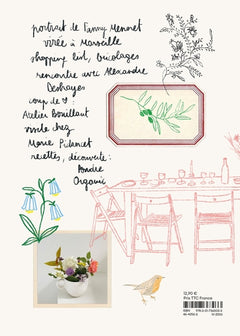 portrait de Fanny Monnet
virée à Marseille
shopping list, bricolages
rencontre avec Alexandre
Deshayes
coup de ♡ :
Atelier Bouillant
visite chez
Marie Pidancet
recettes, découverte :
Poudre
Organic
12,90 €
Prix TTC France
ISBN